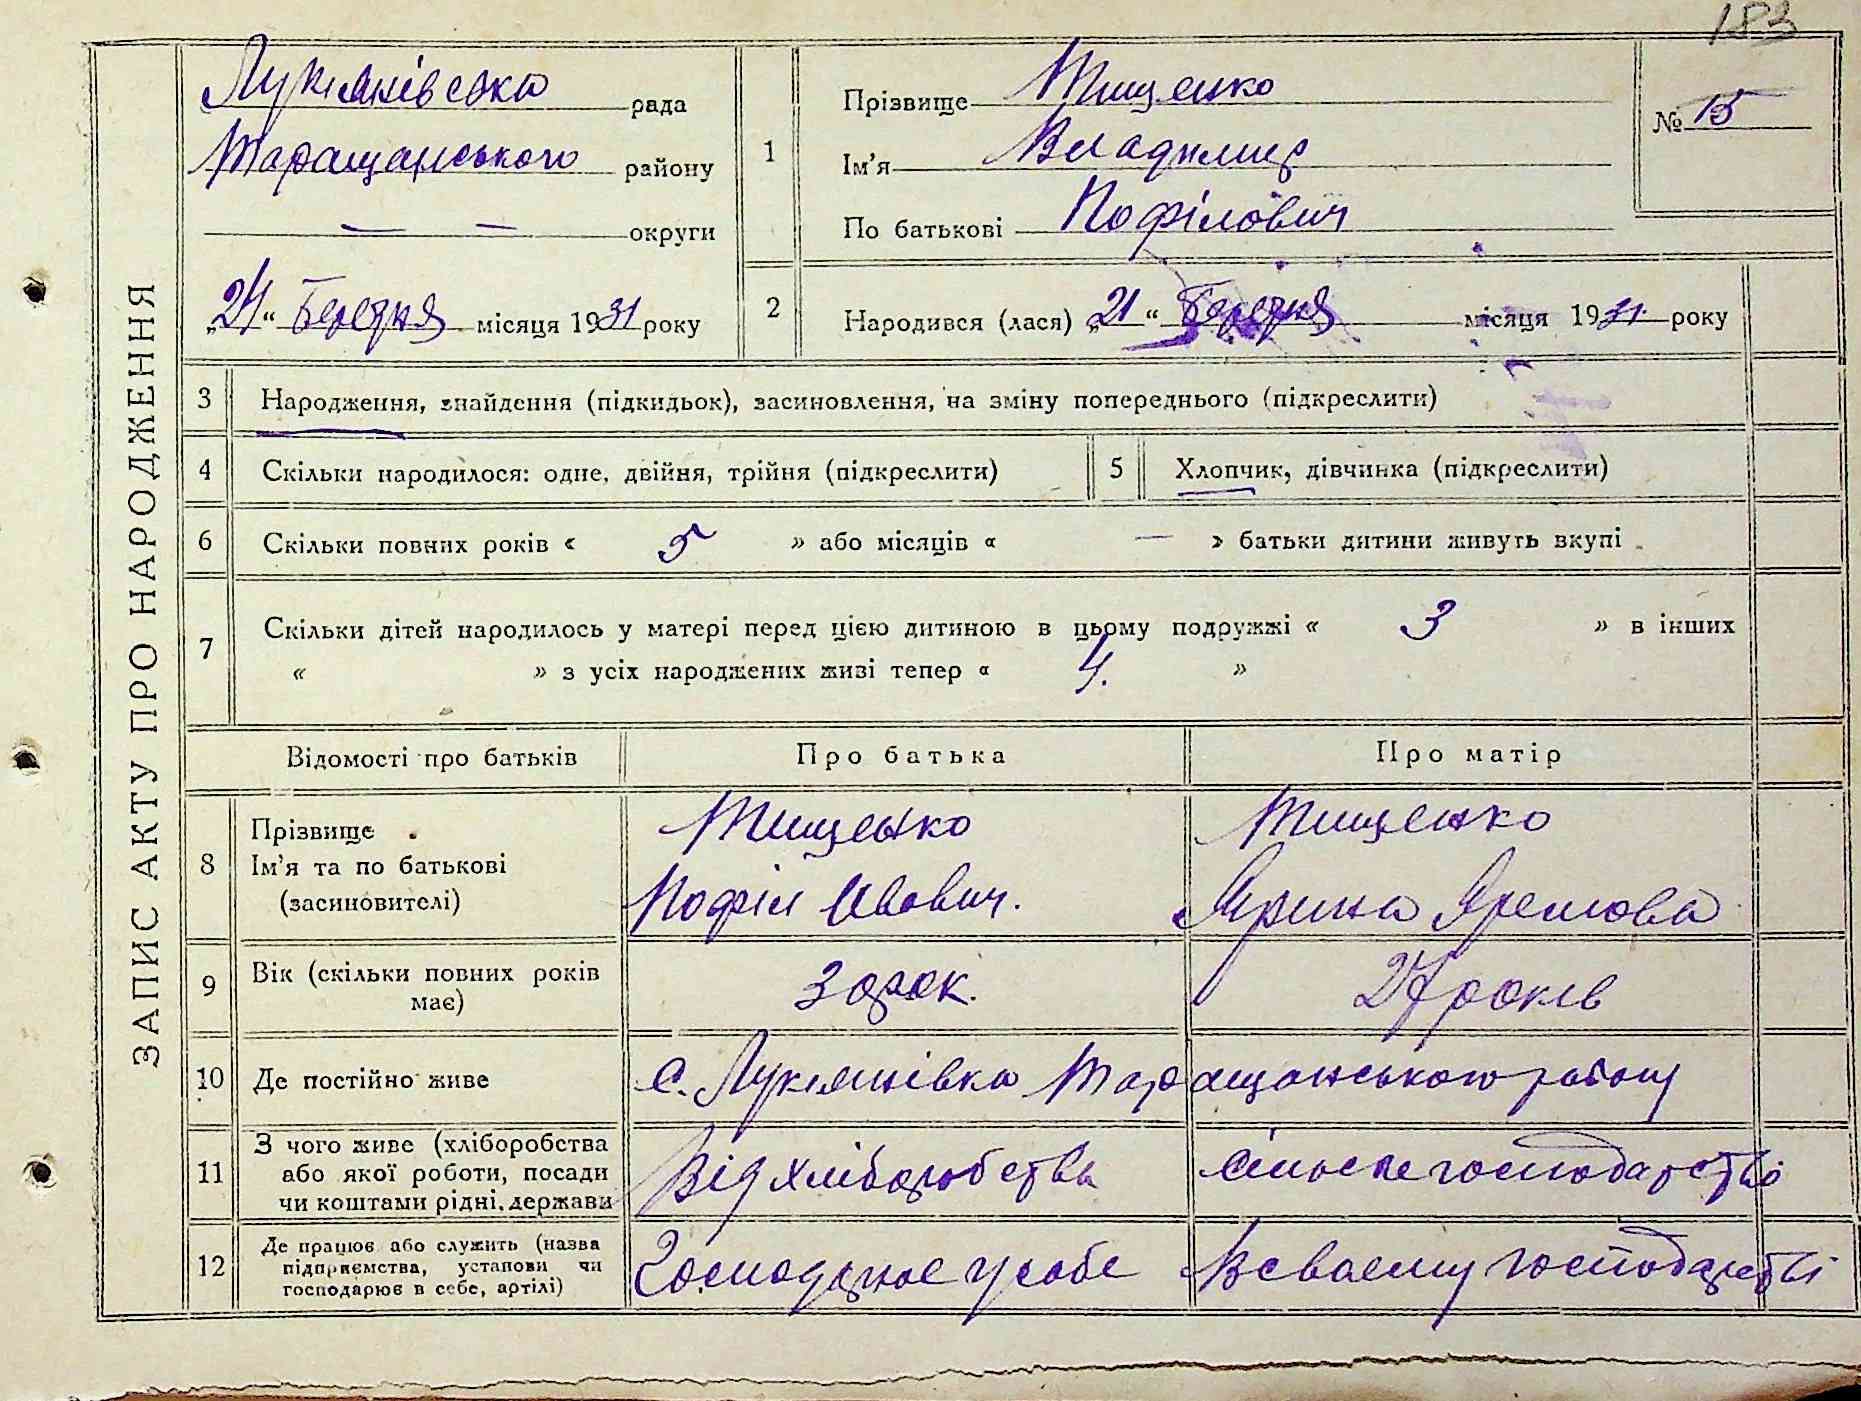 183
ЗАПИС АКТУ ПРО НАРОДЖЕННЯ
Лукянівська рада
Таращанського району
— — округи
„24“ Березня місяця 1931 року
1
Прізвище Тищенко
Ім'я Владимир
По батькові Пофілович
№ 15
2
Народився (лася) „21“ Березня місяця 1931 року
3 Народження, знайдення (підкидьок), засиновлення, на зміну попереднього (підкреслити)
4 Скільки народилося: одне, двійня, трійня (підкреслити)
5 Хлопчик, дівчинка (підкреслити)
6 Скільки повних років « 5 » або місяців « — » батьки дитини живуть вкупі
7 Скільки дітей народилось у матері перед цією дитиною в цьому подружжі « 3 » в інших
« » з усіх народжених живі тепер « 4. »
Відомості про батьків Про батька Про матір
8
Прізвище
Ім'я та по батькові
(засиновителі)
Тищенко
Пофіл Івович.
Тищенко
Ярина Яремова
9
Вік (скільки повних років
має)
30 рок.
27 років
10 Де постійно живе с. Лукянівка Таращанського району
11
З чого живе (хліборобства
або якої роботи, посади
чи коштами рідні, держави
Від хліборобства
Сільське господарство
12
Де працює або служить (назва
підприємства, установи чи
господарює в себе, артілі)
Господарює у себе
В своему господарстві